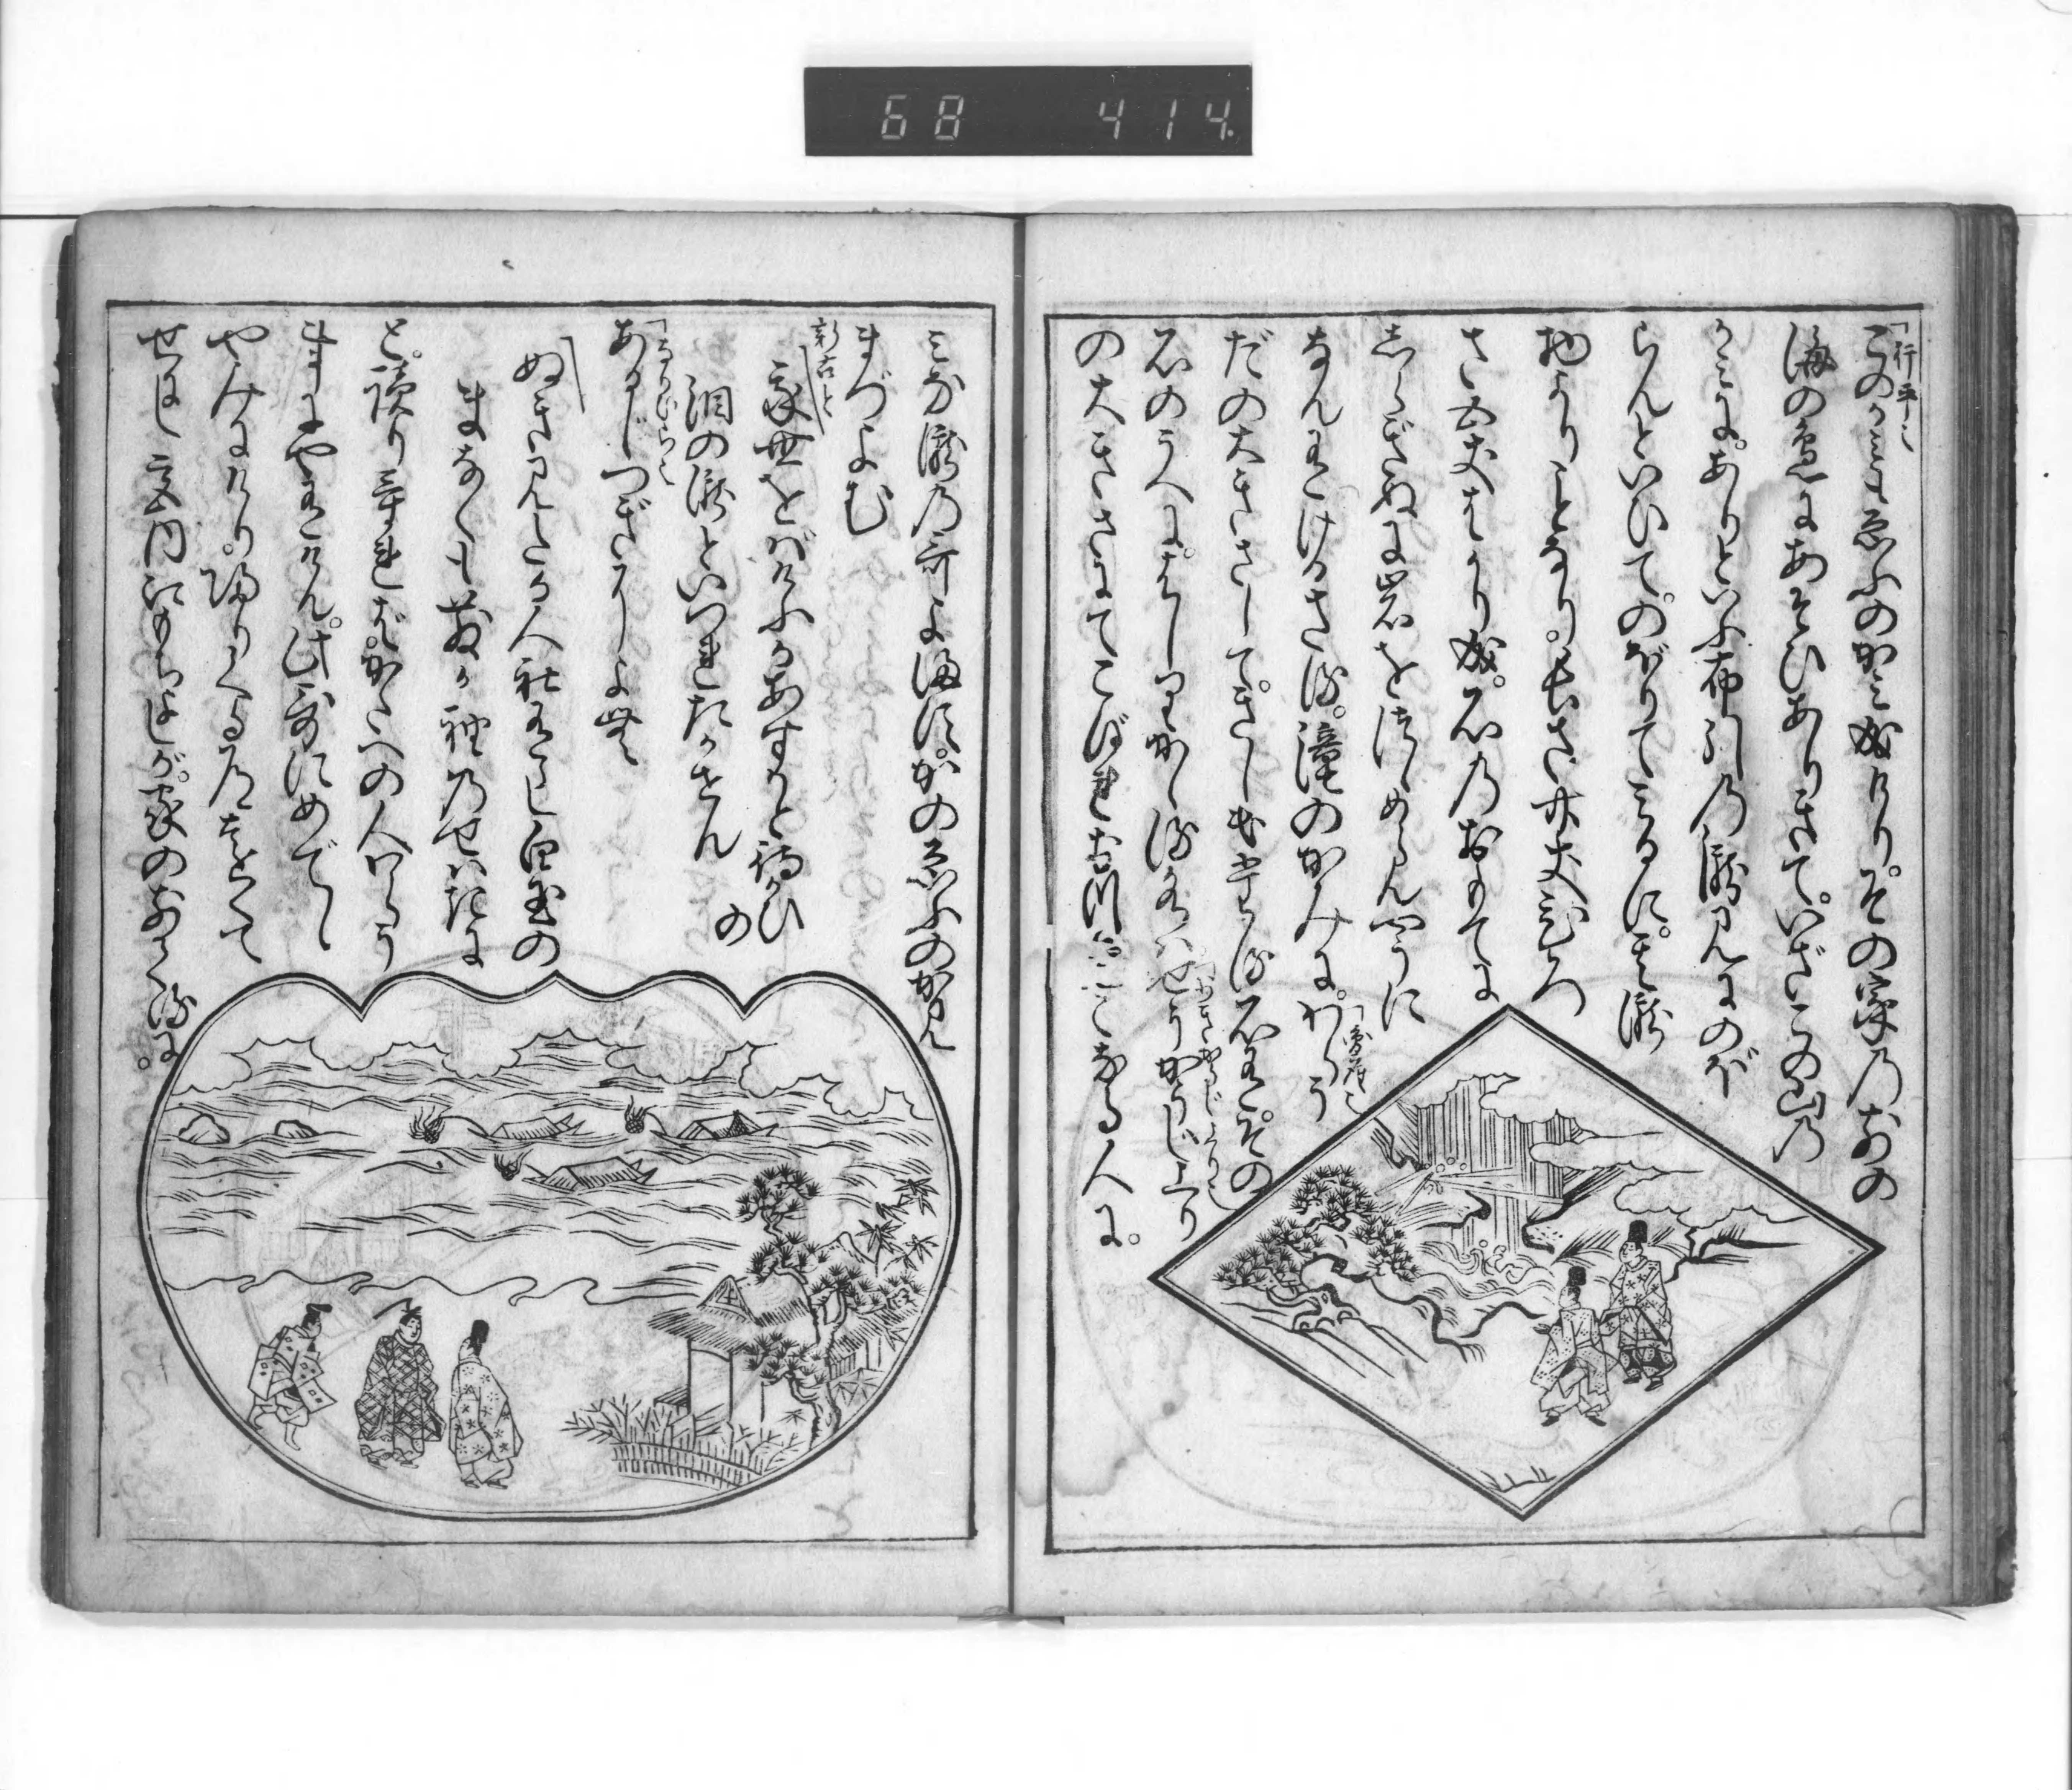 68 414
「行平也
このかみもゑふのかみ成けり。その家のまへの
海の邊にあそひありきて。いざこの山の
かみに。ありといふ布引の瀧見にのぼ
らんといひて。のぼりてみるに。其瀧
物よりことなり。長さ廿丈ひろ
さ五丈はかり成。石のおもてに
しらぎぬに岩をつゝめらんやうに
なん有ける。さる。瀧のかみに。わらう
だの大きさして。さし出たる石有。その
石のうへに。はしりかゝる水は。せうかうじくり
の大きさにてこぼれおつ。そこなる人に。
みな瀧の哥よます。かのゑふのかみ
まづよむ
新古と
我世をばけふかあすかと待かひの
涙の瀧といづれたかけん
あるじつぎによむ
ぬきみだる人社有らし白玉の
まなくもちるか袖のせはきに
と。讀りければ。かたへの人わらう
ことにや有けん。此哥にめでゝ
やみにけり。歸りくる道とをくて
うせにし宮内卿もちよしが。家のまへくるに。